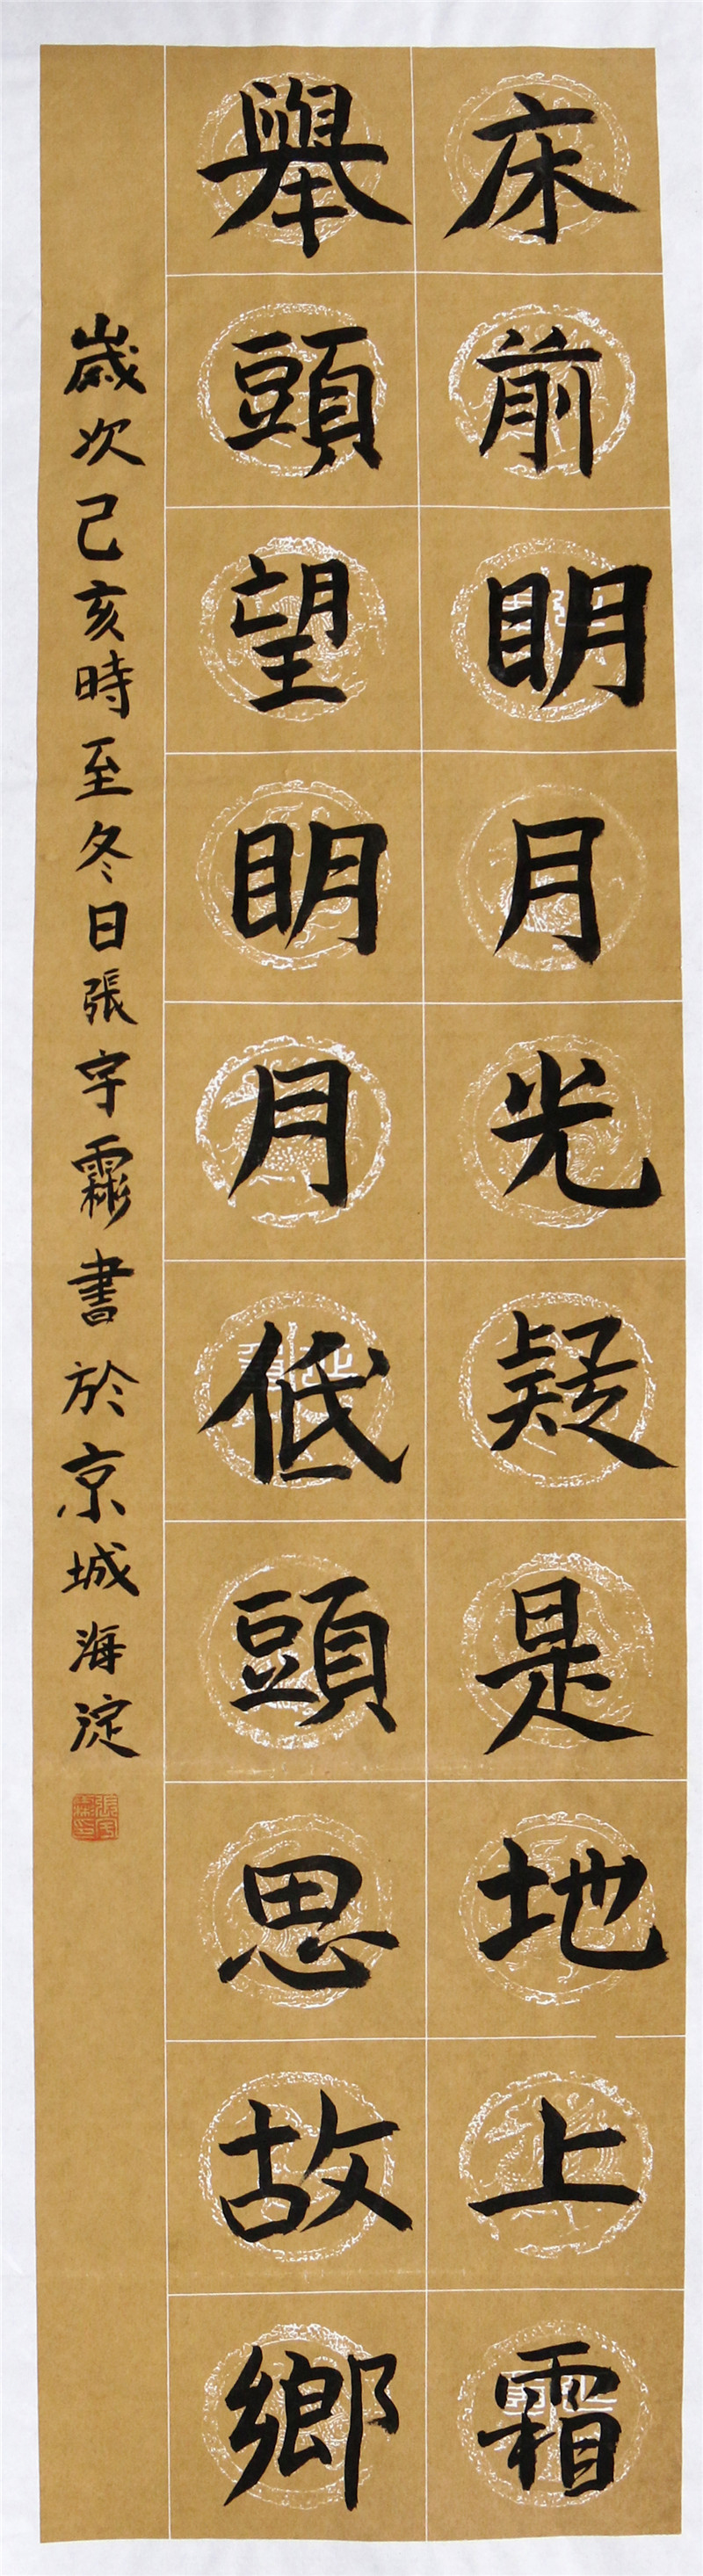 床前明月光疑是地上霜
舉頭望明月低頭思故鄉
歲次己亥時至冬日張字霖書於京城海淀